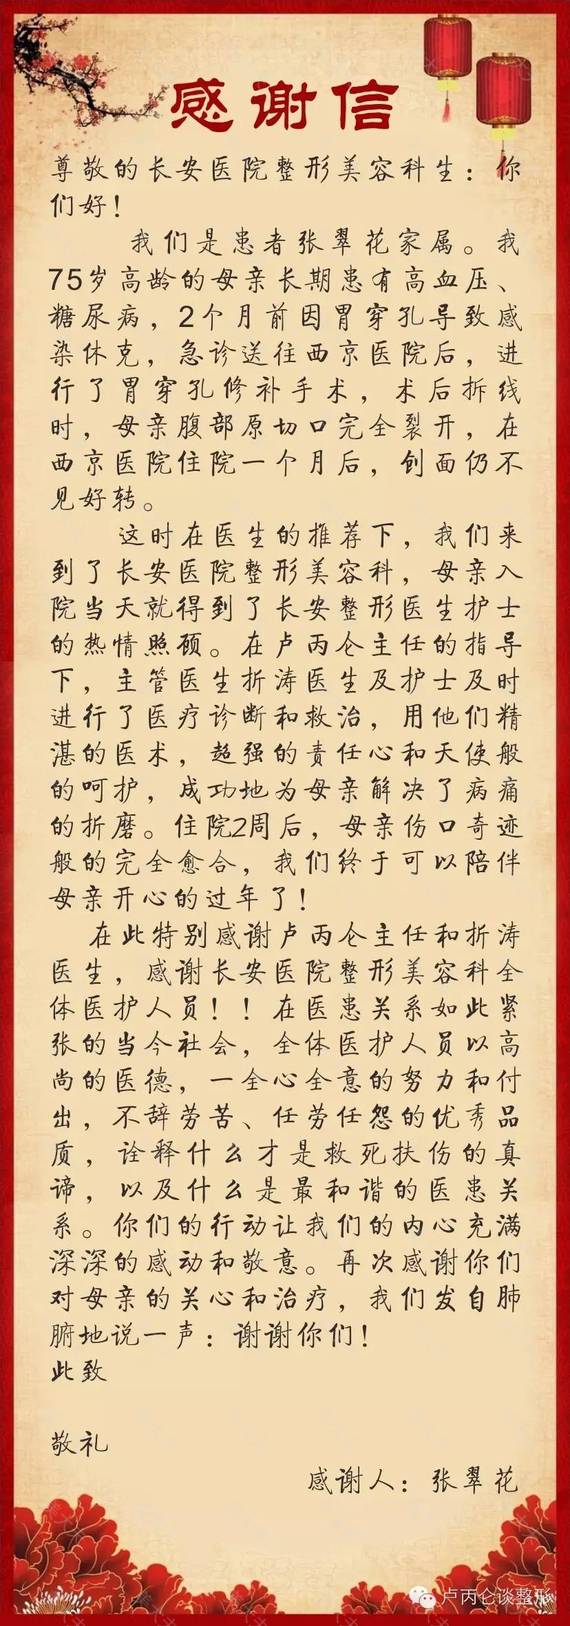 感谢信
尊敬的长安医院整形美容科生：你
们好！
我们是患者张翠花家属。我
75岁高龄的母亲长期患有高血压、
糖尿病，2个月前因胃穿孔导致感
染休克，急诊送往西京医院后，进
行了胃穿孔修补手术，术后拆线
时，母亲腹部原切口完全裂开，在
西京医院住院一个月后，创面仍不
见好转。
这时在医生的推荐下，我们来
到了长安医院整形美容科，母亲入
院当天就得到了长安整形医生护士
的热情照顾。在卢丙仑主任的指导
下，主管医生折涛医生及护士及时
进行了医疗诊断和救治，用他们精
湛的医术，超强的责任心和天使般
的呵护，成功地为母亲解决了病痛
的折磨。住院2周后，母亲伤口奇迹
般的完全愈合，我们终于可以陪伴
母亲开心的过年了！
在此特别感谢卢丙仑主任和折涛
医生，感谢长安医院整形美容科全
体医护人员！！在医患关系如此紧
张的当今社会，全体医护人员以高
尚的医德，一全心全意的努力和付
出，不辞劳苦、任劳任怨的优秀品
质，诠释什么才是救死扶伤的真
谛，以及什么是最和谐的医患关
系。你们的行动让我们的内心充满
深深的感动和敬意。再次感谢你们
对母亲的关心和治疗，我们发自肺
腑地说一声：谢谢你们！
此致
敬礼
感谢人：张翠花
卢丙仑谈整形